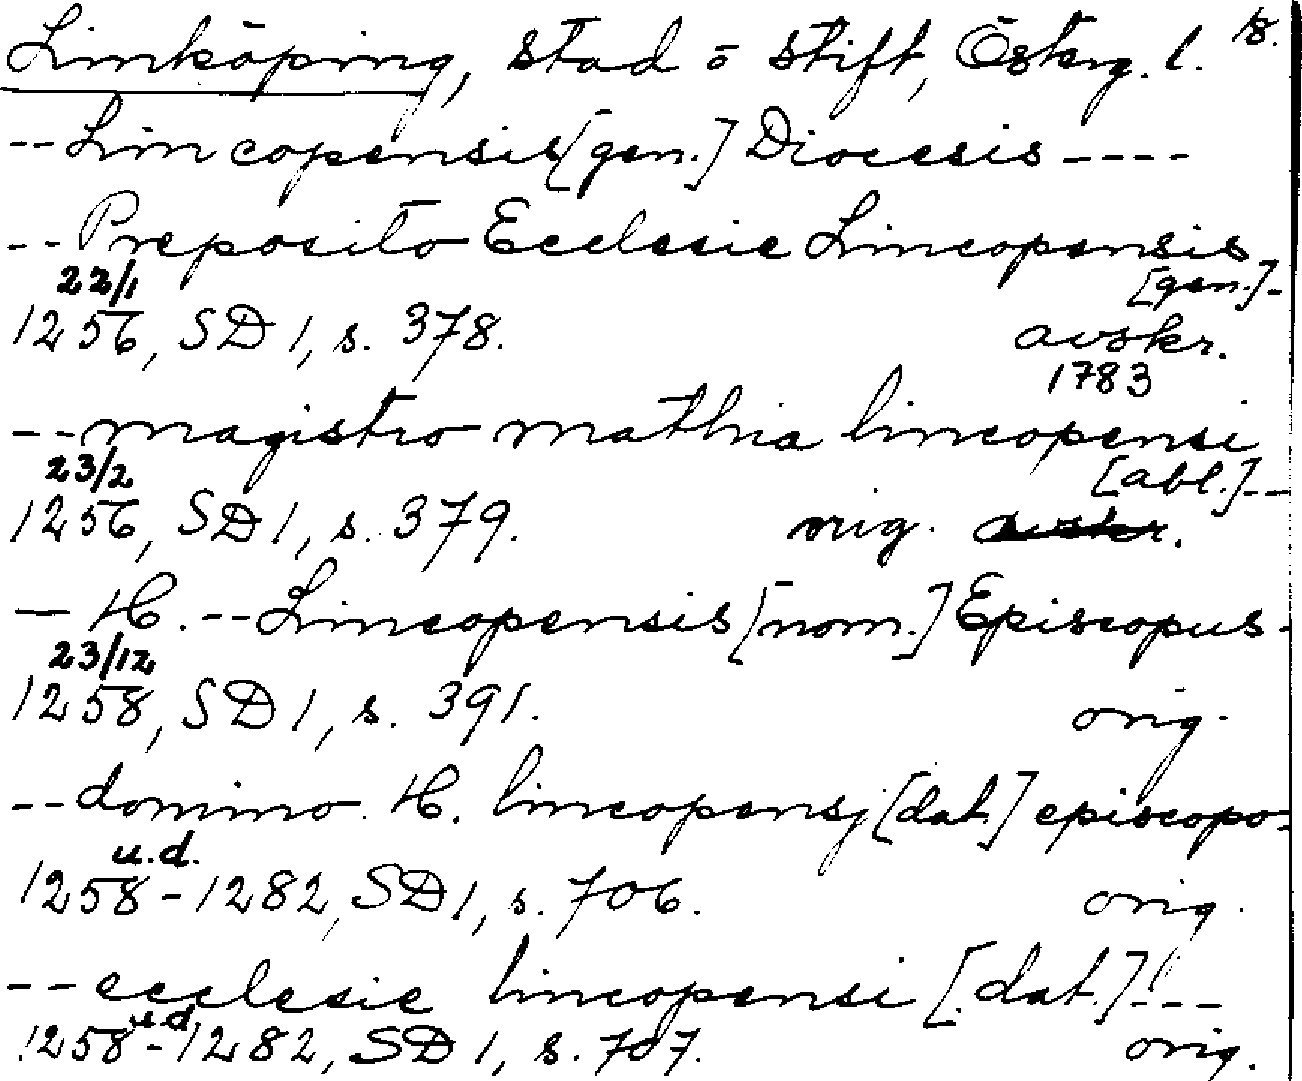 Linköping, stad o stift, Östrg. l. 18.
--Lincopensis [gen.] Diocesis ----
--Preposito Ecclesie Lincopensis
[gen.]-
22/1
1256, SD 1, s. 378. avskr.
1783
--magistro mathia lincopensi
[abl.]--
23/2
1256, SD 1, s. 379. orig. avskr.
— H. -- Lincopensis [nom.] Episcopus -
23/12
1258, SD 1, s. 391. orig.
--domino H. lincopensj [dat.] episcopo-
u.d.
1258-1282, SD 1, s. 706. orig.
--ecclesie lincopensi [dat.]---
u.d.
1258-1282, SD 1, s. 707. orig.